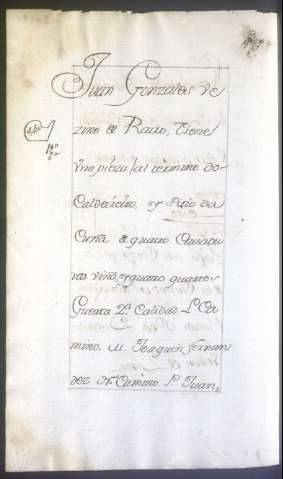 Juan Gonzales ve
zino de Rado, tiene
vna pieza al termino do
Caldevicino, y Sitio da
Cuña de quatro Ozadu
ras viña, y quatro quarto
2ª Calidad L. Ca
mino. M. Joaquin fernan
dez N. Camino. P. Juan,